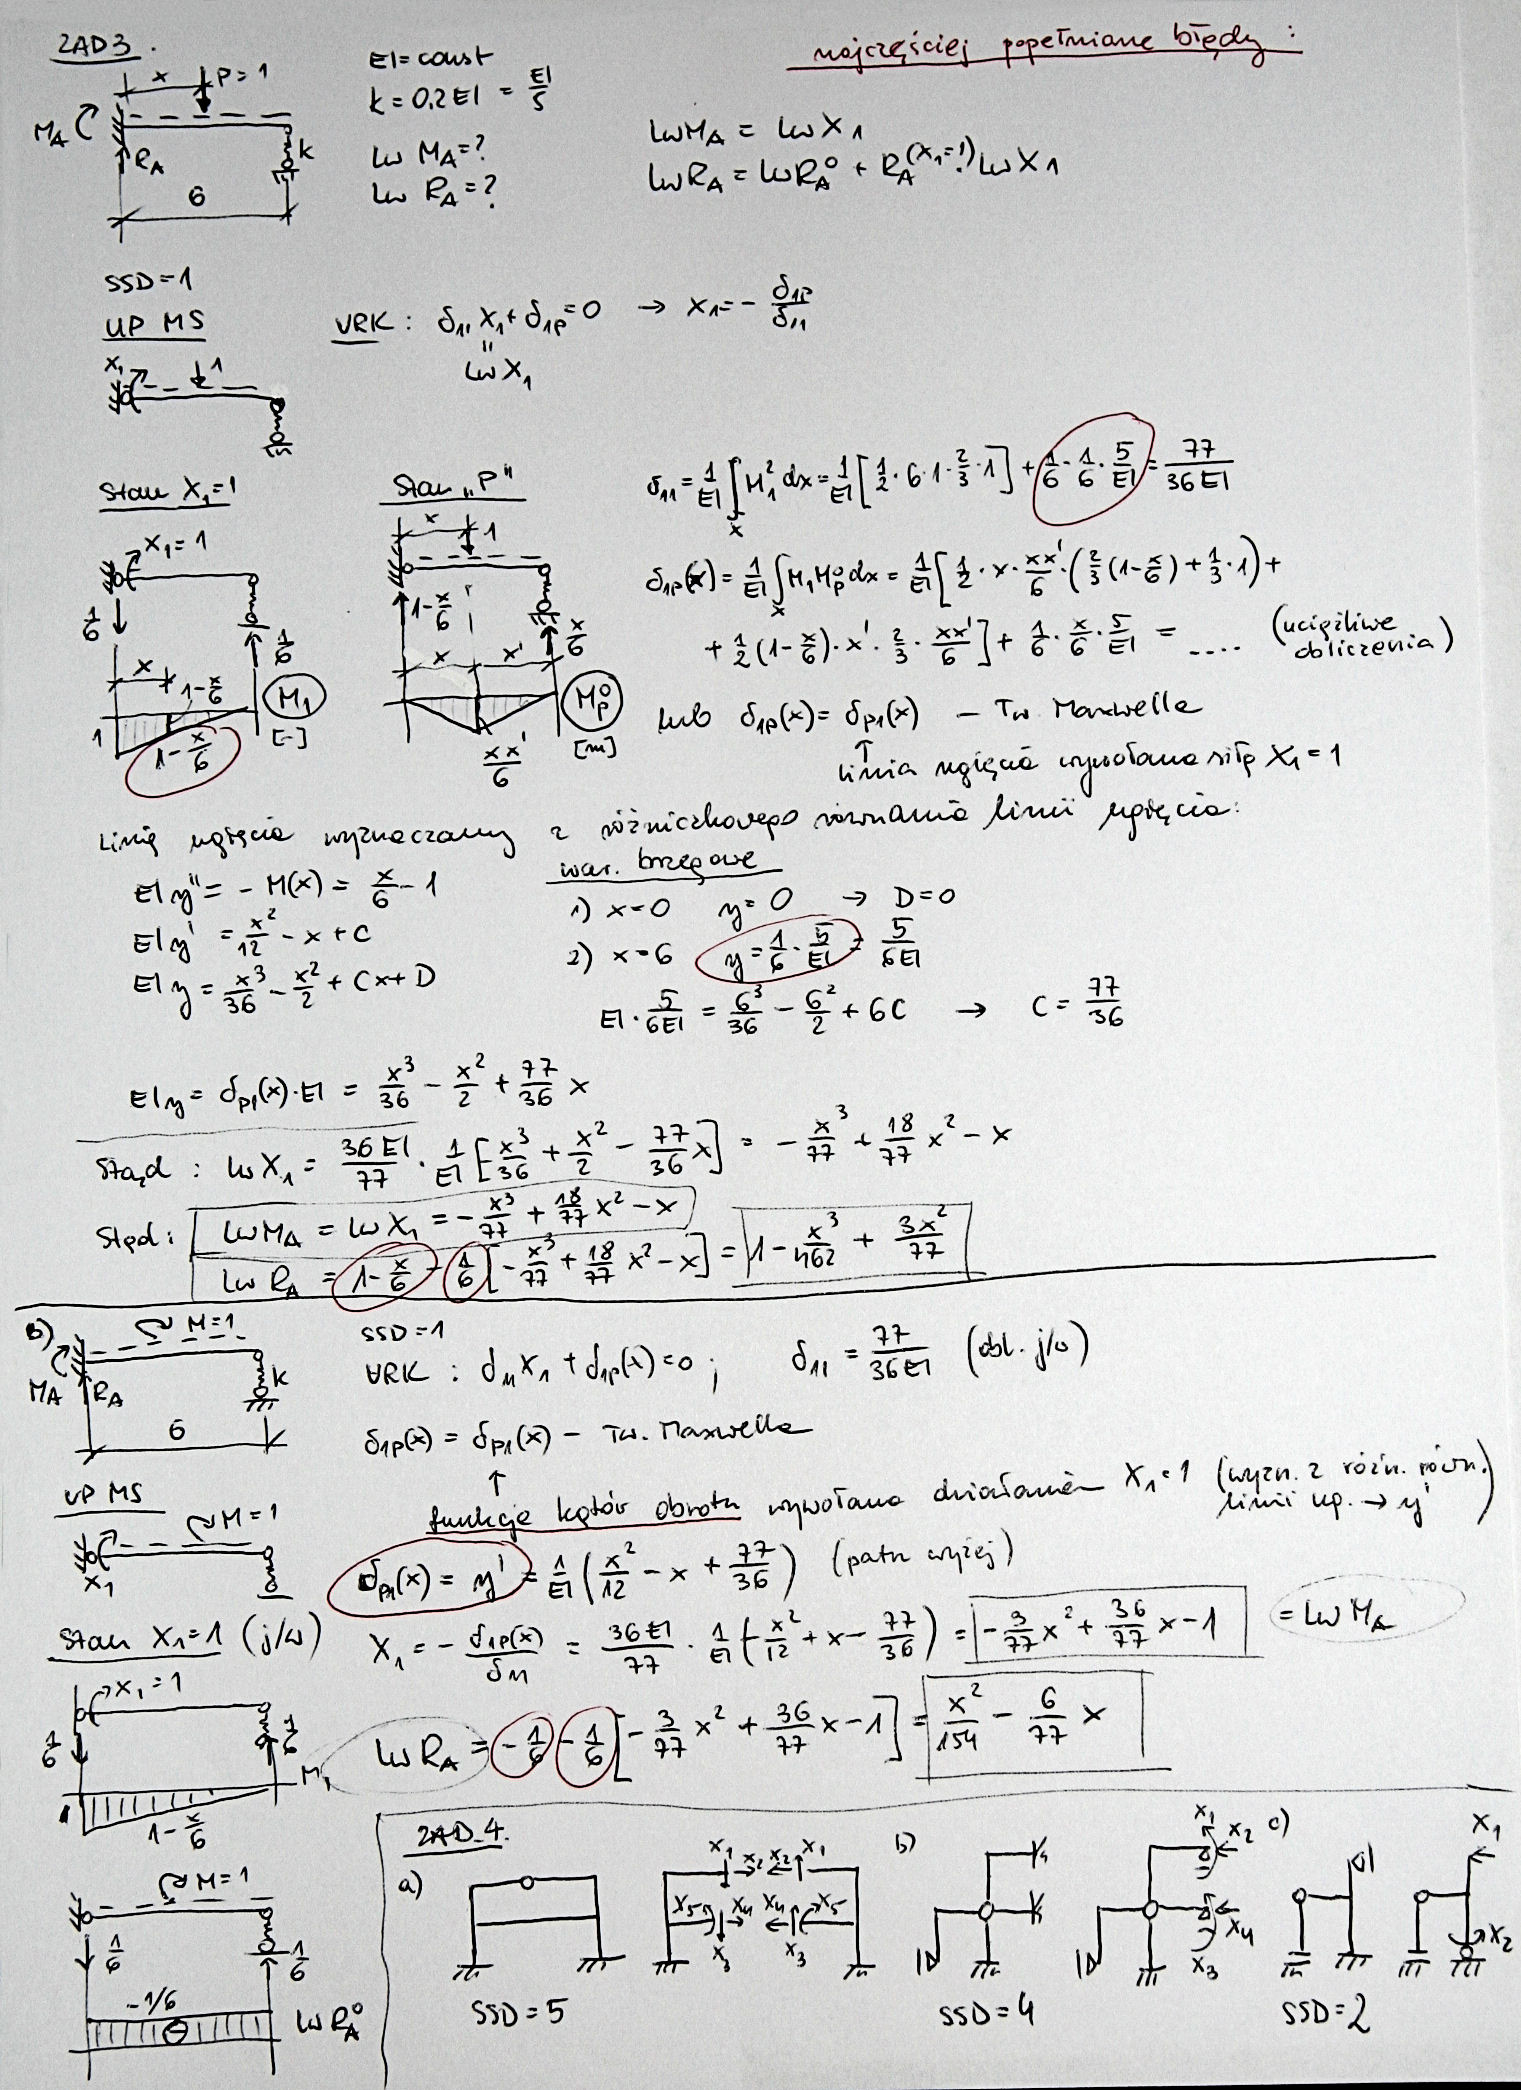 ZAD 3.
najczęściej popełniane błędy:
x P=1
M_A R_A k
6
EI=const
k=0,2EI = EI/5
Lw M_A=?
Lw R_A=?
LwM_A = LwX_1
LwR_A = LwR_A^0 + R_A^(X_1=1) · LwX_1
SSD=1
UPMS
X_1 1
URK: δ_11 X_1 + δ_1P = 0 → X_1 = - δ_1P/δ_11
"
LwX_1
Stan X_1=1
X_1=1
1/6 1/6
x 1-x/6
1 1-x/6 M_1 [-]
Stan „P"
x 1
1-x/6 x/6
x x'
xx'/6 M_P^0 [m]
δ_11 = 1/EI ∫_x M_1^2 dx = 1/EI [1/2 · 6 · 1 · 2/3 · 1] + 1/6 · 1/6 · 5/EI = 77/36EI
δ_1P(x) = 1/EI ∫_x M_1 M_P^0 dx = 1/EI [1/2 · x · xx'/6 · (2/3 (1-x/6) + 1/3 · 1) +
+ 1/2 (1-x/6) · x' · 2/3 · xx'/6] + 1/6 · x/6 · 5/EI = .... (uciążliwe obliczenia)
lub δ_1P(x) = δ_P1(x) – Tw. Maxwella
↑
linia ugięcia wywołana siłą X_1=1
Linię ugięcia wyznaczamy z różniczkowego równania linii ugięcia:
EIy'' = -M(x) = x/6 - 1
EIy' = x^2/12 - x + C
EIy = x^3/36 - x^2/2 + Cx + D
war. brzegowe
1) x=0 y=0 → D=0
2) x=6 y = 1/6 · 5/EI = 5/6EI
EI · 5/6EI = 6^3/36 - 6^2/2 + 6C → C = 77/36
EIy = δ_P1(x)·EI = x^3/36 - x^2/2 + 77/36 x
Stąd: LwX_1 = 36EI/77 · 1/EI [-x^3/36 + x^2/2 - 77/36 x] = -x^3/77 + 18/77 x^2 - x
Stąd: LwM_A = LwX_1 = -x^3/77 + 18/77 x^2 - x
Lw R_A = 1-x/6 - 1/6 [-x^3/77 + 18/77 x^2 - x] = 1 - x^3/462 + 3x^2/77
B)
M=1
M_A R_A k
6
SSD=1
URK: δ_11 X_1 + δ_1P(x) = 0; δ_11 = 77/36EI (obl. j/w)
δ_1P(x) = δ_P1(x) – Tw. Maxwella
↑
funkcja kątów obrotu wywołana działaniem X_1=1 (wyzn. z różn. równ. linii ug. → y'
UPMS
M=1
X_1
δ_P1(x) = y' = 1/EI (x^2/12 - x + 77/36) (patrz wyżej)
Stan X_1=1 (j/w)
X_1 = - δ_1P(x)/δ_11 = 36EI/77 · 1/EI (-x^2/12 + x - 77/36) = -3/77 x^2 + 36/77 x - 1 = LwM_A
X_1=1
1/6 1/6
1 1-x/6 M_1
Lw R_A = -1/6 - 1/6 [-3/77 x^2 + 36/77 x - 1] = x^2/154 - 6/77 x
M=1
1/6 1/6
-1/6
⊖ LwR_A^0
ZAD. 4.
a) X_1 X_2 X_2 X_1
X_5 X_4 X_4 X_5
X_3 X_3
SSD=5
b) X_1 X_2
X_4
X_3
SSD=4
c) X_1
X_2
SSD=2